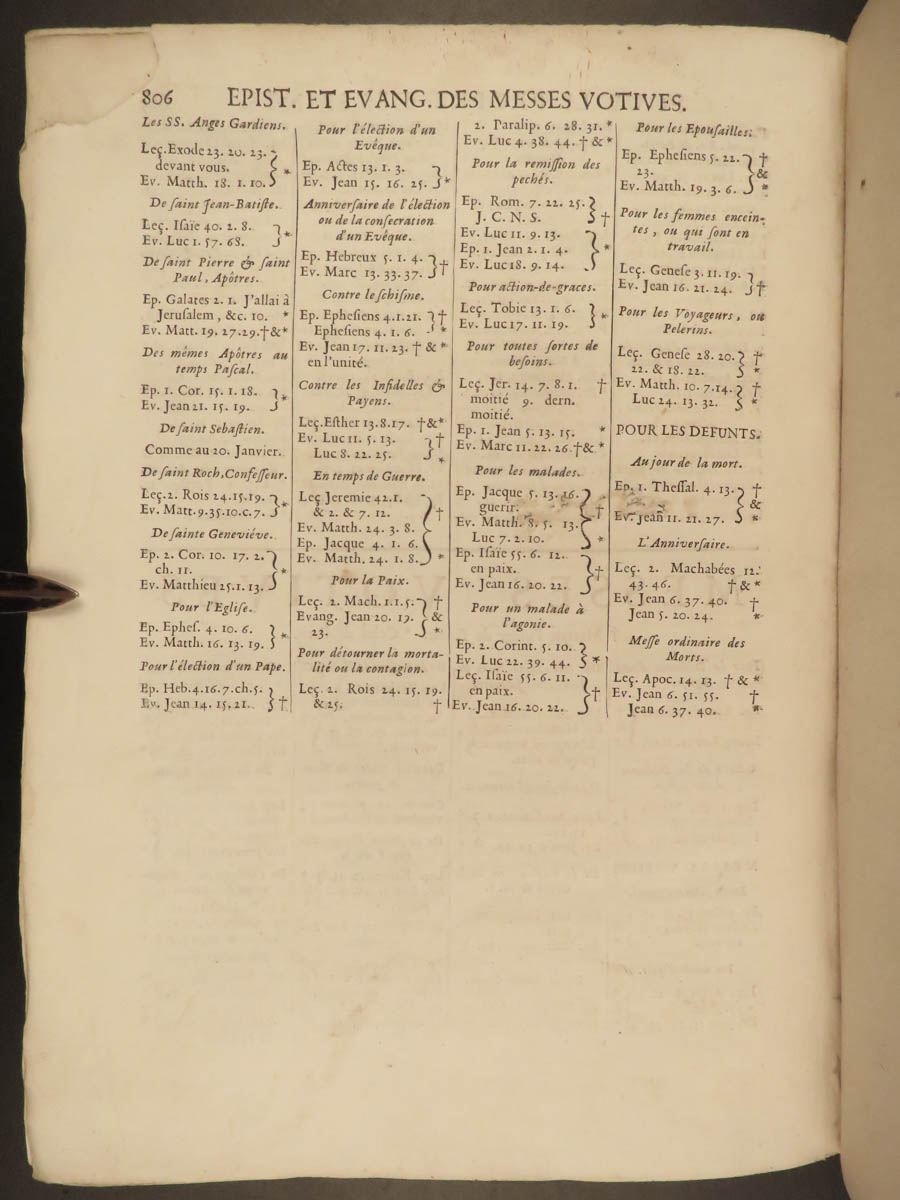 806 EPIST. ET EVANG. DES MESSES VOTIVES.
Les SS. Anges Gardiens.
Leç. Exode 23. 20. 23.
devant vous. } *
Ev. Matth. 18. 1. 10.
De ſaint Jean-Batiſte.
Leç. Iſaïe 40. 2. 8. } *
Ev. Luc 1. 57. 68.
De ſaint Pierre & ſaint
Paul, Apôtres.
Ep. Galates 2. 1. J'allai à
Jeruſalem, &c. 10. *
Ev. Matt. 19. 27-29. † & *
Des mêmes Apôtres au
temps Paſcal.
Ep. 1. Cor. 15. 1. 18. } *
Ev. Jean 21. 15. 19.
De ſaint Sebaſtien.
Comme au 20. Janvier.
De ſaint Roch, Confeſſeur.
Leç. 2. Rois 24. 15. 19. } *
Ev. Matt. 9. 35. 10. c. 7.
De ſainte Geneviéve.
Ep. 2. Cor. 10. 17. 2.
ch. 11. } *
Ev. Matthieu 25. 1. 13.
Pour l'Egliſe.
Ep. Epheſ. 4. 10. 6. } *
Ev. Matth. 16. 13. 19.
Pour l'élection d'un Pape.
Ep. Heb. 4. 16. 7. ch. 5. } †
Ev. Jean 14. 15. 21.
Pour l'élection d'un
Evêque.
Ep. Actes 13. 1. 3. } *
Ev. Jean 15. 16. 25.
Anniverſaire de l'élection
ou de la conſecration
d'un Evêque.
Ep. Hebreux 5. 1. 4. } †
Ev. Marc 13. 33. 37.
Contre le ſchiſme.
Ep. Epheſiens 4. 1. 21. } †
Epheſiens 4. 1. 6. *
Ev. Jean 17. 11. 23. † & *
en l'unité.
Contre les Infidelles &
Payens.
Leç. Eſther 13. 8. 17. † & *
Ev. Luc 11. 5. 13. } †
Luc 8. 22. 25. *
En temps de Guerre.
Leç Jeremie 42. 1.
& 2. & 7. 12. } †
Ev. Matth. 24. 3. 8.
Ep. Jacque 4. 1. 6.
Ev. Matth. 24. 1. 8. *
Pour la Paix.
Leç. 2. Mach. 1. 1. 5. †
Evang. Jean 20. 19. } &
23. *
Pour détourner la morta-
lité ou la contagion.
Leç. 2. Rois 24. 15. 19.
& 25. †
2. Paralip. 6. 28. 31. *
Ev. Luc 4. 38. 44. † & *
Pour la remiſſion des
pechés.
Ep. Rom. 7. 22. 25. } †
J. C. N. S.
Ev. Luc 11. 9. 13.
Ep. 1. Jean 2. 1. 4. } *
Ev. Luc 18. 9. 14.
Pour action-de-graces.
Leç. Tobie 13. 1. 6. } *
Ev. Luc 17. 11. 19.
Pour toutes ſortes de
beſoins.
Leç. Jer. 14. 7. 8. 1. †
moitié 9. dern.
moitié.
Ep. 1. Jean 5. 13. 15. *
Ev. Marc 11. 22. 26 † & *
Pour les malades.
Ep. Jacque 5. 13. 16. } †
guerir.
Ev. Matth. 8. 5. 13.
Luc 7. 2. 10. } *
Ep. Iſaïe 55. 6. 12.
en paix. } †
Ev. Jean 16. 20. 22.
Pour un malade à
l'agonie.
Ep. 2. Corint. 5. 10. } *
Ev. Luc 22. 39. 44.
Leç. Iſaïe 55. 6. 11.
en paix. } †
Ev. Jean 16. 20. 22.
Pour les Epouſailles.
Ep. Epheſiens 5. 22. †
23. } &
Ev. Matth. 19. 3. 6. *
Pour les femmes encein-
tes, ou qui ſont en
travail.
Leç. Geneſe 3. 11. 19. } †
Ev. Jean 16. 21. 24.
Pour les Voyageurs, ou
Pelerins.
Leç. Geneſe 28. 20. } †
22. & 18. 22. *
Ev. Matth. 10. 7. 14. } †
Luc 24. 13. 32. *
POUR LES DEFUNTS.
Au jour de la mort.
Ep. 1. Theſſal. 4. 13. †
&
Ev. Jean 11. 21. 27. *
L'Anniverſaire.
Leç. 2. Machabées 12.
43. 46. † & *
Ev. Jean 6. 37. 40. †
Jean 5. 20. 24. *
Meſſe ordinaire des
Morts.
Leç. Apoc. 14. 13. † & *
Ev. Jean 6. 51. 55. †
Jean 6. 37. 40. *